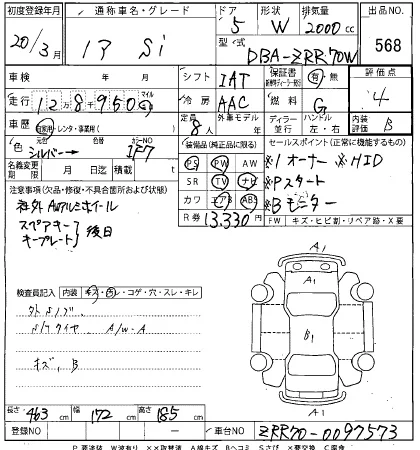 初度登録年月 通称車名・グレード ドア 形状 排気量 出品NO.
20/3月 ノア Si 5 W 2000cc 568
型式 DBA-ZRR70W
車検 年 月 シフト IAT 保証書 有 無 評価点
走行 12万8千950 マイル 冷房 AAC 燃料 G 4
車歴 自家用・レンタ・事業用( ) 定員 8人 外装モデル年 ディーラー並行 ハンドル 左・右 内装評価 B
色 シルバー→ カラーNO 1F7 装備品(純正品に限る) セールスポイント(正常に機能するもの)
名義変更期限 月 日迄 積載量 t PS PW AW ※1オーナー ※HID
注意事項(欠品・修復・不具合箇所および状態) SR TV ナビ ※Pスタート
社外Awアルミホイール カワ エアB ABS ※Bモニター
スペアキー1 R券 13,330円 FW キズ・ヒビ割・リペア跡・X要
キープレート1 後日
検査員記入 内装 キズ・汚レ・コゲ・穴・スレ・キレ
A1
A1
B1
A1
A/W-A
キズ、B
長さ 463cm 幅 172cm 高さ 185cm
登録NO ー 車台NO ZRR70-0097573
P 要塗装 W波有り XX取替済 A線キズ Bヘコミ Sさび X要交換 C腐食